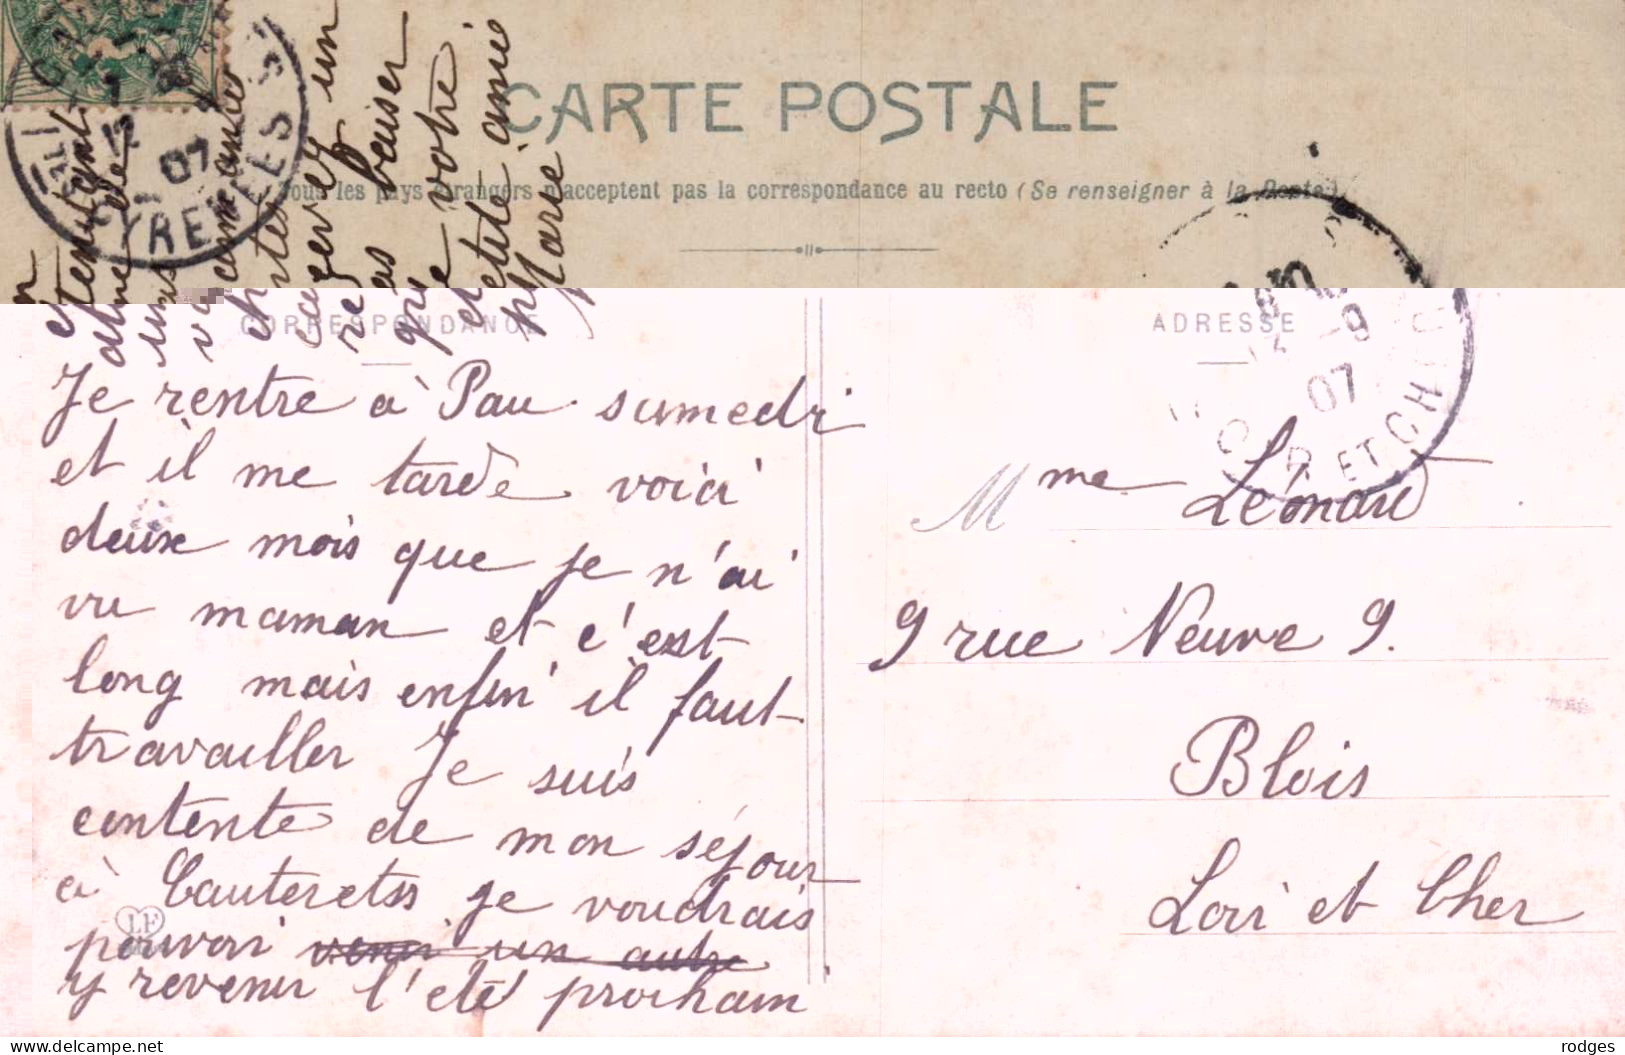 CARTE POSTALE
Tous les pays étrangers n'acceptent pas la correspondance au recto (Se renseigner à la Poste)
CORRESPONDANCE
ADRESSE
Je rentre à Pau samedi
et il me tarde voici
deux mois que je n'ai
vu maman et c'est
long mais enfin il faut
travailler Je suis
contente de mon séjour
à Cauterets je voudrais
pouvoir venir un autre
y revenir l'été prochain
un baiser
que votre
petite amie
Marie
12
07
PYRENEES
-9
07
LOIR ET CHER
Mme Léonard
9 rue Neuve 9.
Blois
Loir et Cher
LF
delcampe.net
rodges